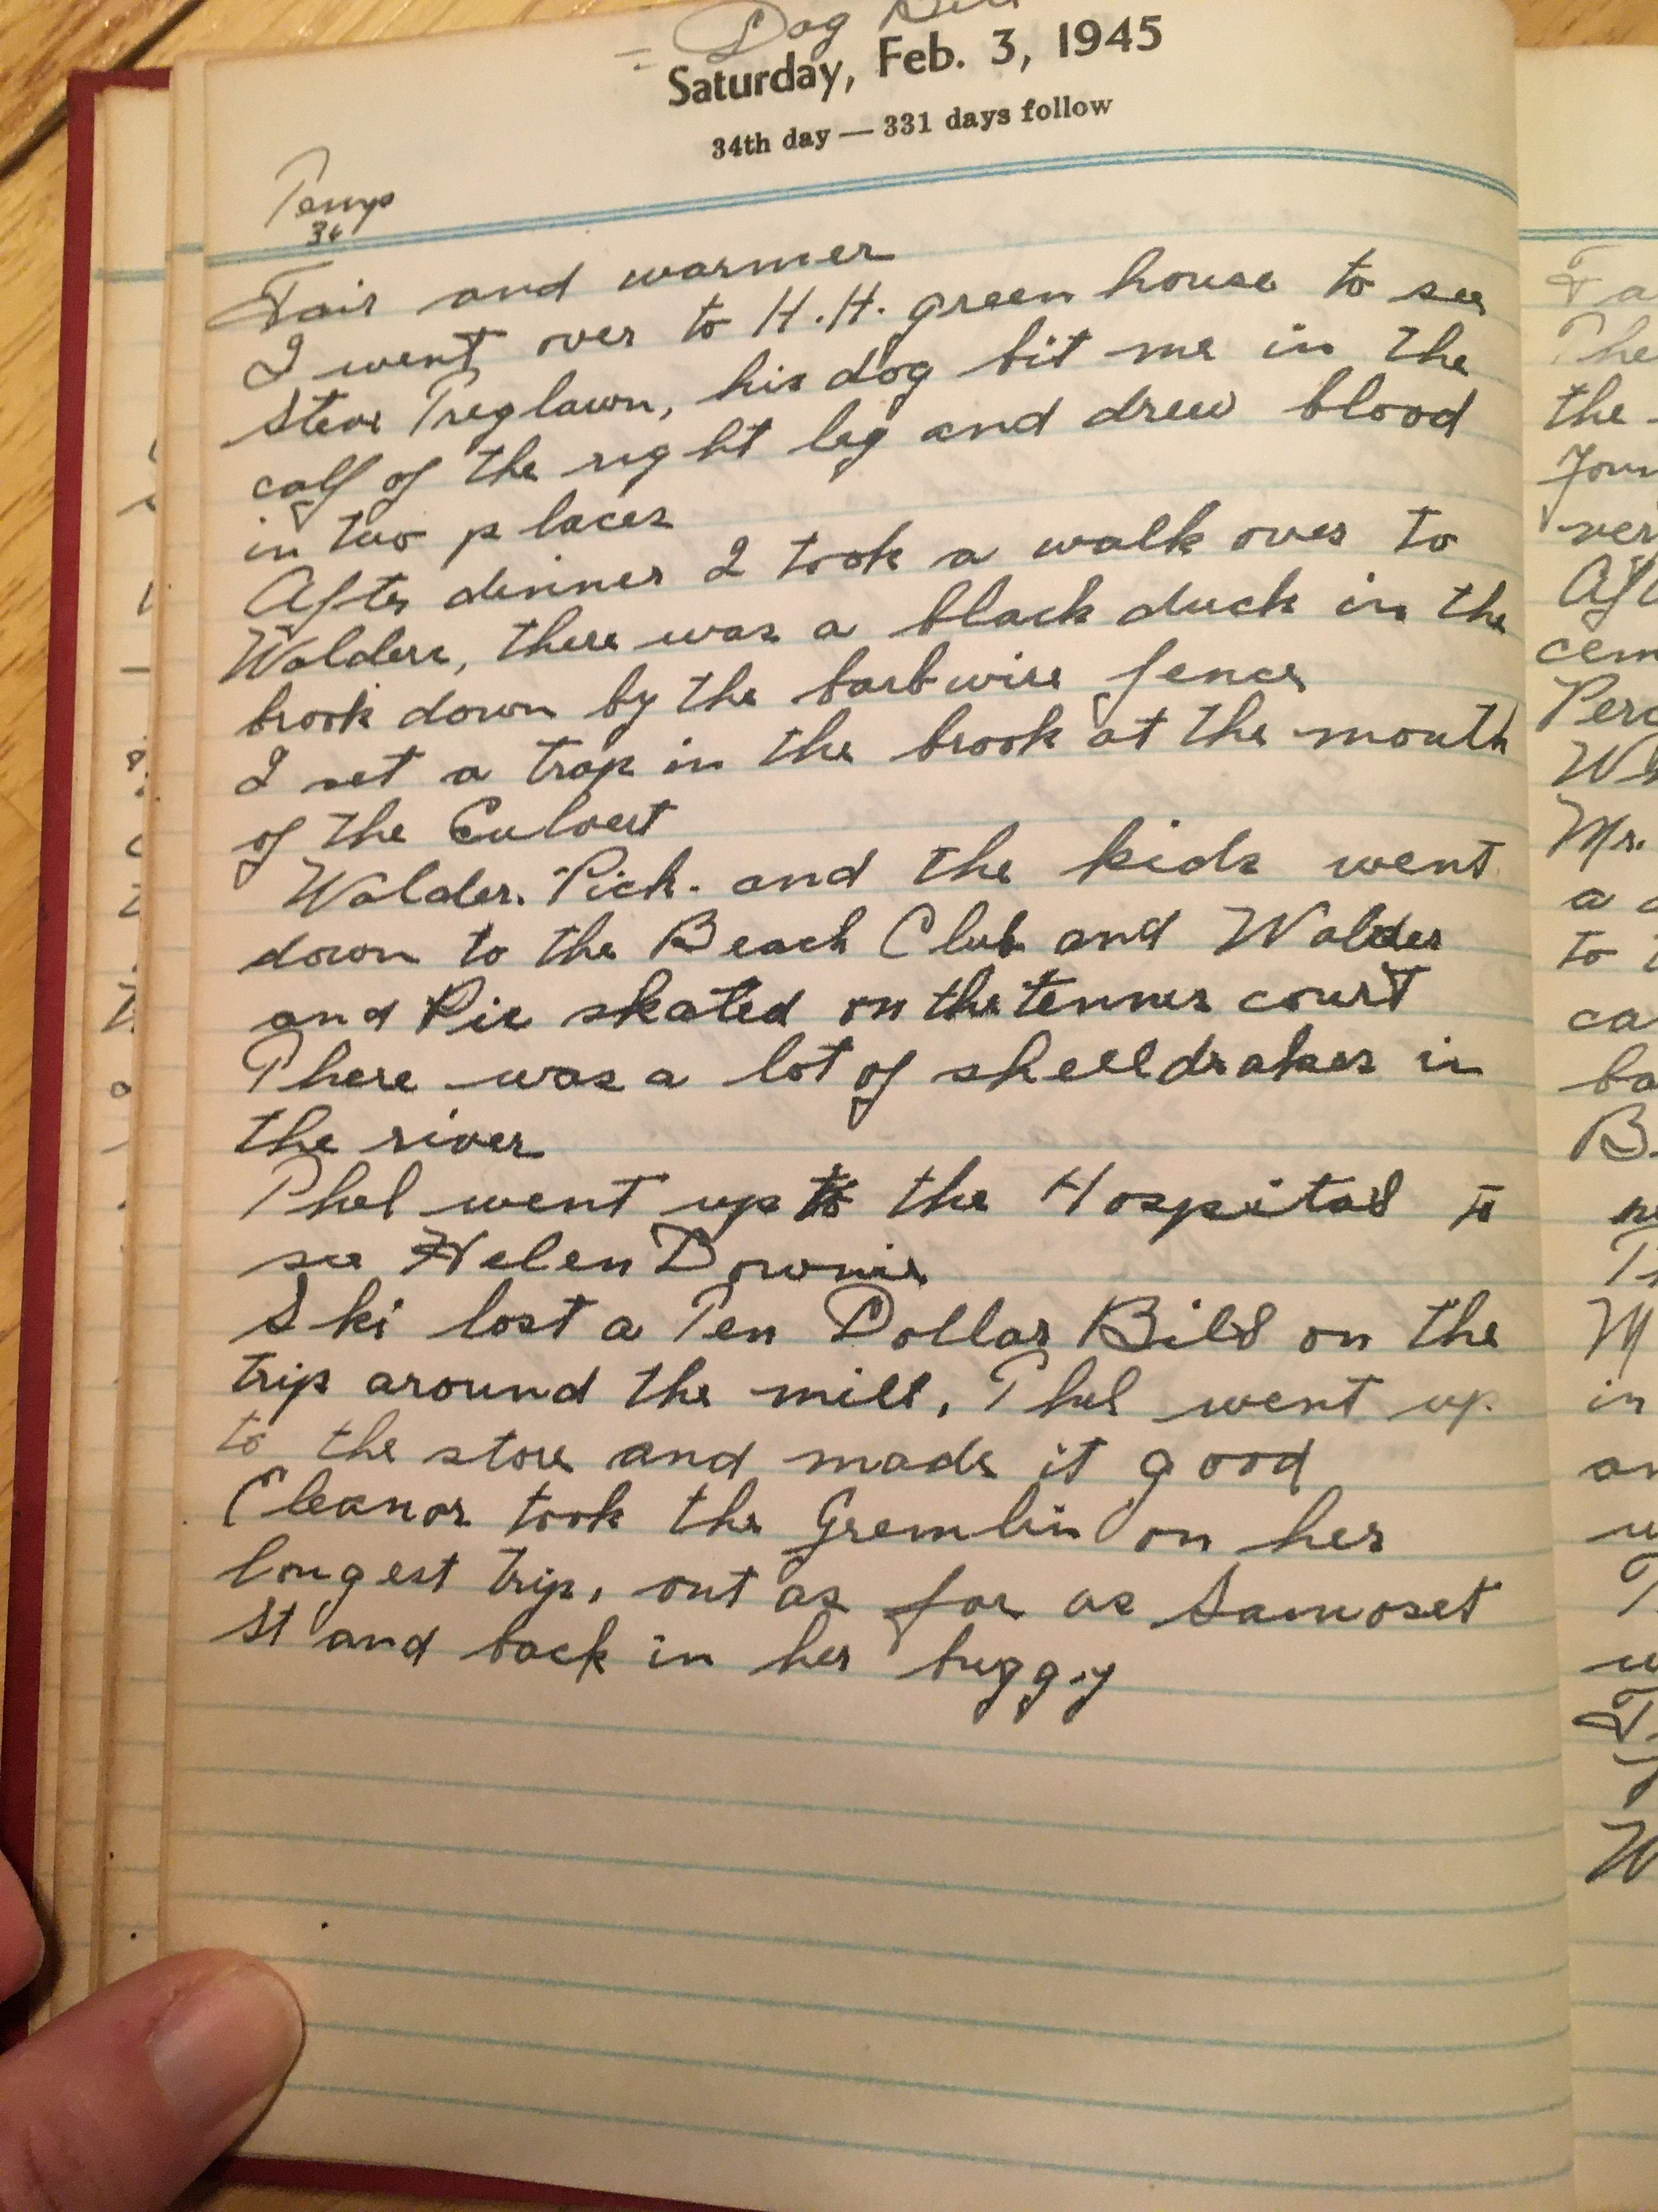 Dog
Saturday, Feb. 3, 1945
34th day — 331 days follow
Temp
36
Fair and warmer
I went over to H.H. green house to see
Steve Treglawn, his dog bit me in the
calf of the right leg and drew blood
in two places
After dinner I took a walk over to
Walders, there was a black duck in the
brook down by the barb wire fence
I set a trap in the brook at the mouth
of the Culvert
Walder. Pick. and the kids went
down to the Beach Club and Walder
and Pic skated on the tennis court
There was a lot of shelldrakes in
the river
Phil went up to the Hospital to
see Helen Downie
Ski lost a Ten Dollar Bill on the
trip around the mill, Phil went up
to the store and made it good
Eleanor took the Gremlin on her
longest trip, out as far as Samoset
St and back in her buggy